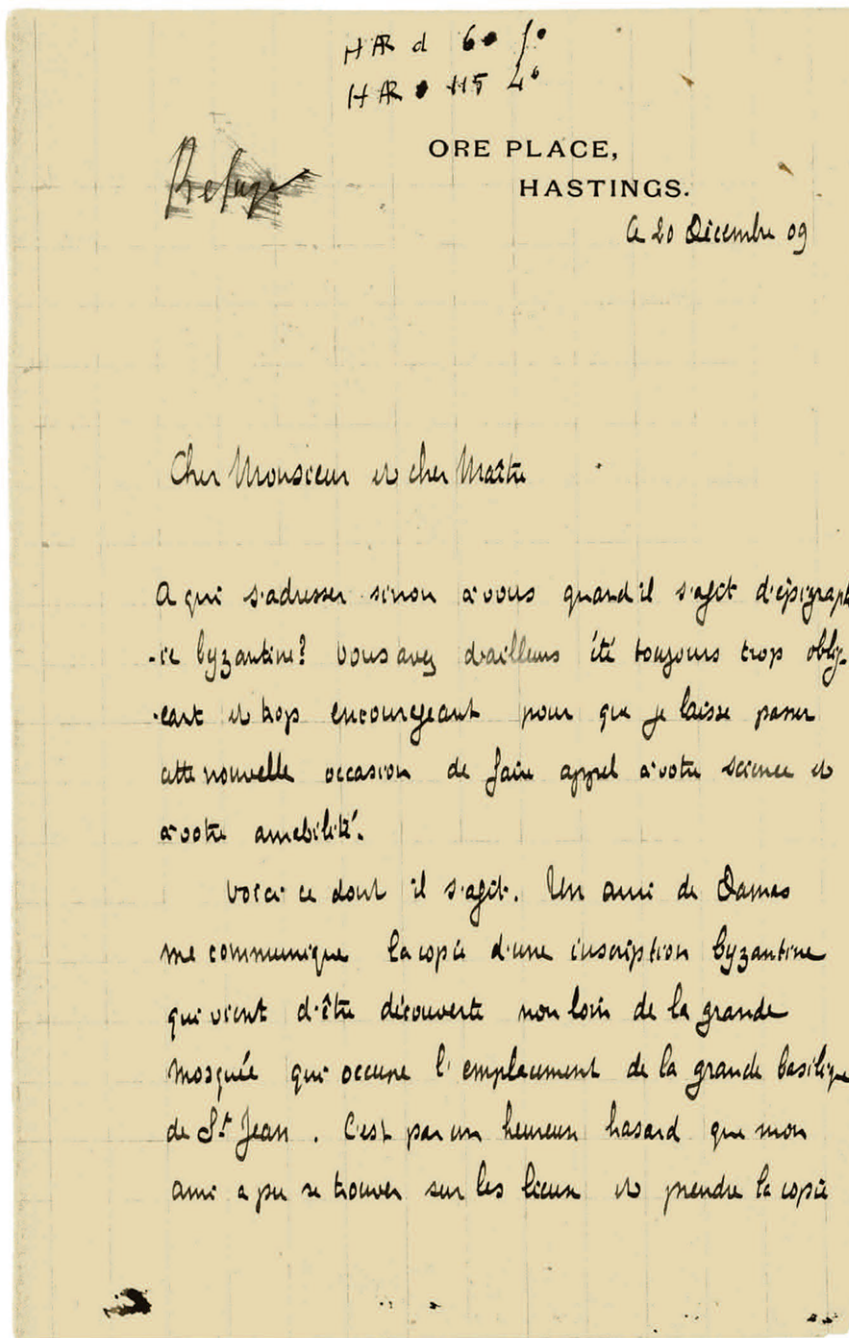 ORE PLACE,
HASTINGS.
le 20 Décembre 09
Cher Monsieur et cher Maître
A qui s'adresser sinon à vous quand il s'agit d'épigraph
-ie byzantine? Vous avez d'ailleurs été toujours trop oblig-
-eant et trop encourageant pour que je laisse passer
cette nouvelle occasion de faire appel à votre science et
à votre amabilité.
Voici ce dont il s'agit. Un ami de Damas
me communique la copie d'une inscription byzantine
qui vient d'être découverte non loin de la grande
Mosquée qui occupe l'emplacement de la grande basilique
de St Jean. C'est par un heureux hasard que mon
ami a pu se trouver sur les lieux et prendre la copie